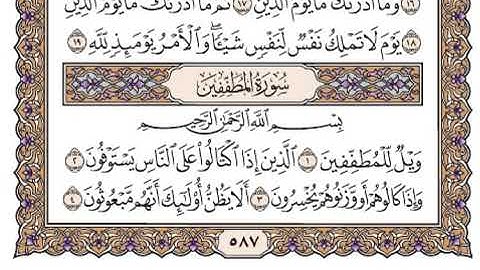 وَمَا أَدْرَىٰكَ مَا يَوْمُ ٱلدِّينِ ١٧ ثُمَّ مَا أَدْرَىٰكَ مَا يَوْمُ ٱلدِّينِ
١٨ يَوْمَ لَا تَمْلِكُ نَفْسٌ لِّنَفْسٍ شَيْـًٔا ۖ وَٱلْأَمْرُ يَوْمَئِذٍ لِّلَّهِ ١٩
سُورَةُ المُطَفِّفِينَ
بِسْمِ ٱللَّهِ ٱلرَّحْمَٰنِ ٱلرَّحِيمِ
وَيْلٌ لِّلْمُطَفِّفِينَ ١ ٱلَّذِينَ إِذَا ٱكْتَالُوا۟ عَلَى ٱلنَّاسِ يَسْتَوْفُونَ ٢
وَإِذَا كَالُوهُمْ أَو وَّزَنُوهُمْ يُخْسِرُونَ ٣ أَلَا يَظُنُّ أُو۟لَٰٓئِكَ أَنَّهُم مَّبْعُوثُونَ ٤
٥٨٧